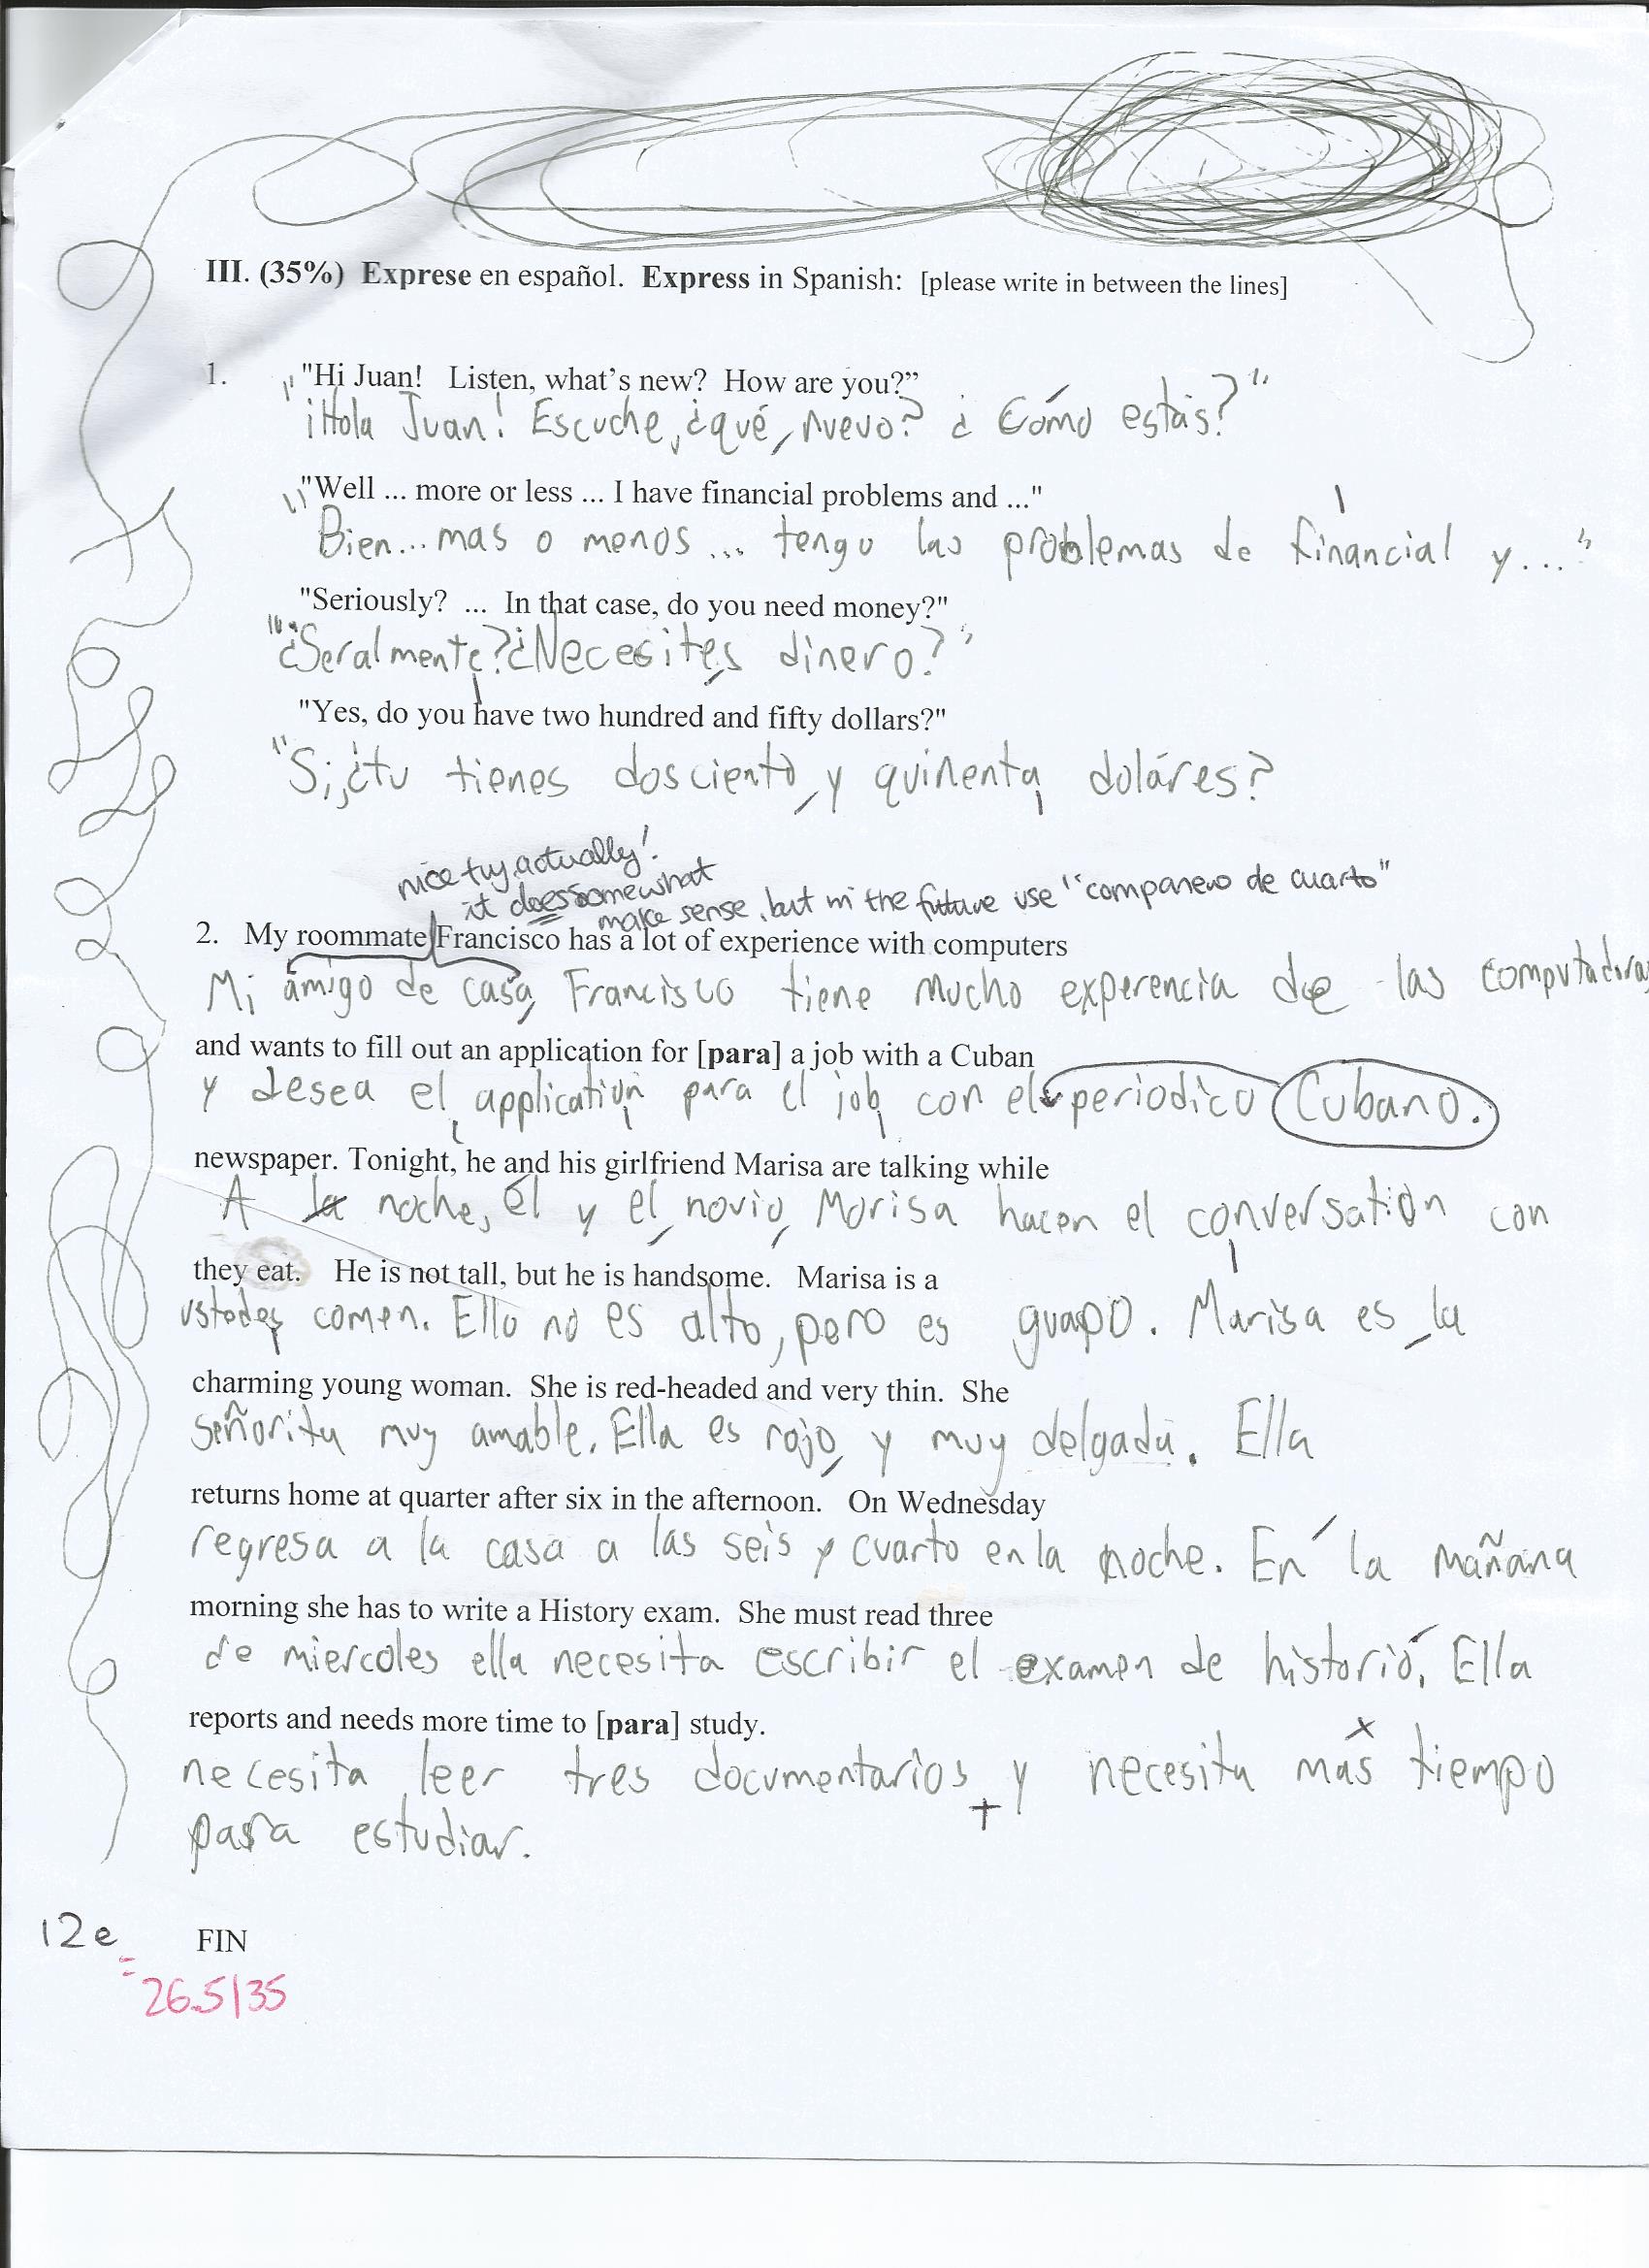 III. (35%) Exprese en español. Express in Spanish: [please write in between the lines]
1. "Hi Juan! Listen, what's new? How are you?"
"¡Hola Juan! Escuche, ¿qué nuevo? ¿Cómo estás?"
"Well ... more or less ... I have financial problems and ..."
Bien... mas o menos... tengo las problemas de financial y..."
"Seriously? ... In that case, do you need money?"
"¿Seralmente? ¿Necesites dinero?"
"Yes, do you have two hundred and fifty dollars?"
"Si, ¿tu tienes dosciento y quinenta doláres?
nice try, actually!
it does somewhat
make sense, but in the future use "companero de cuarto"
2. My roommate Francisco has a lot of experience with computers
Mi amigo de casa, Francisco tiene mucho experencia de las computadoras
and wants to fill out an application for [para] a job with a Cuban
y desea el application para el job con el periodico Cubano.
newspaper. Tonight, he and his girlfriend Marisa are talking while
A la noche, él y el novio, Marisa hacen el conversation con
they eat. He is not tall, but he is handsome. Marisa is a
ustedes comen. Ello no es alto, pero es guapo. Marisa es la
charming young woman. She is red-headed and very thin. She
señorita muy amable. Ella es rojo y muy delgada. Ella
returns home at quarter after six in the afternoon. On Wednesday
regresa a la casa a las seis y cuarto en la noche. En la mañana
morning she has to write a History exam. She must read three
de miercoles ella necesita escribir el examen de historió. Ella
reports and needs more time to [para] study.
necesita leer tres documentarios y necesita más tiempo
para estudiar.
12e FIN
= 26.5/35